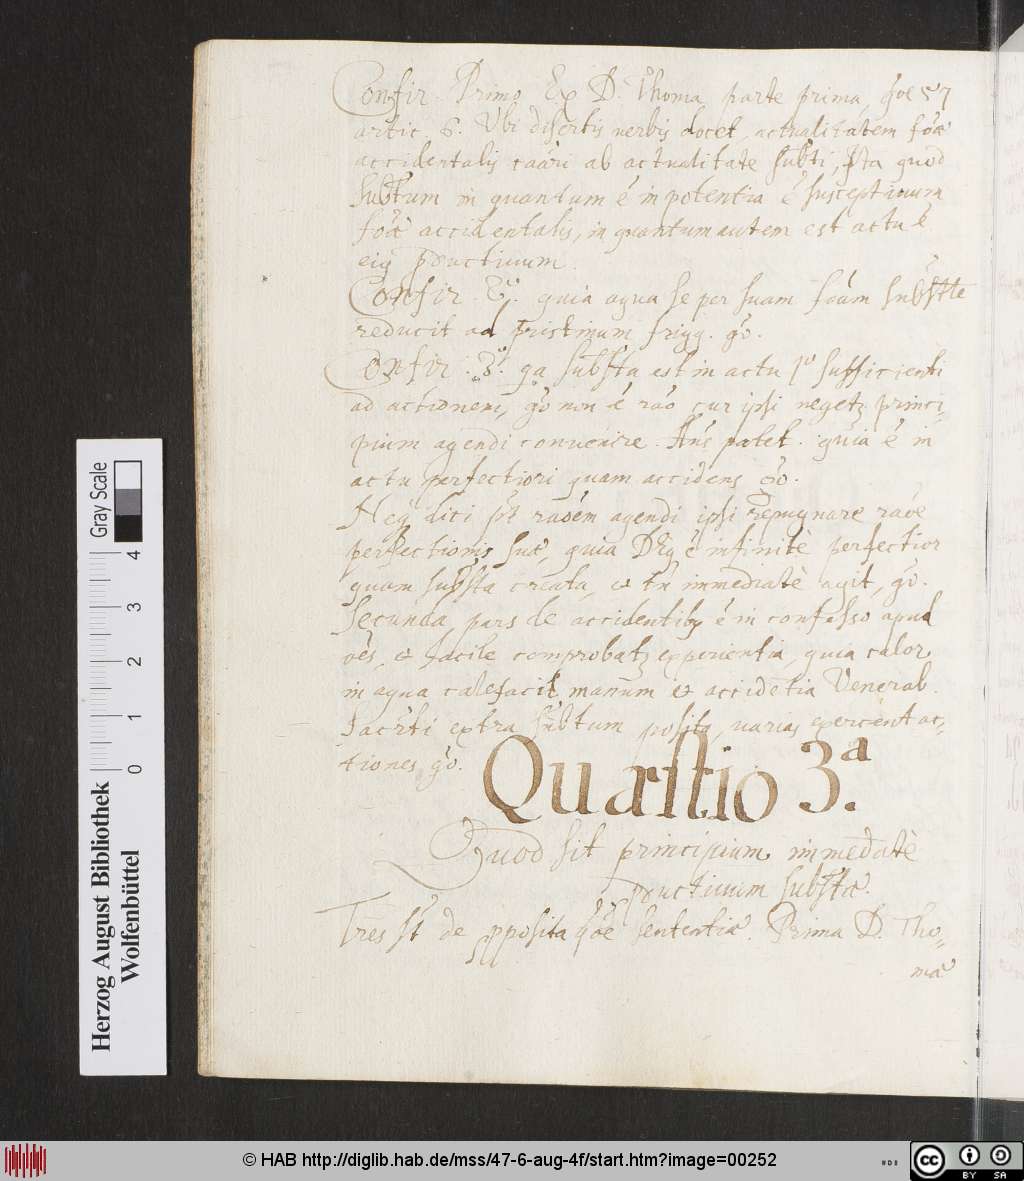 Confir. Primo Ex D. Thoma parte prima, qõe 57
artic. 6. Ubi disertis verbis docet, actualitatem foæ̃
accidentalis caãri ab actualitate subti, Ita quod
subtum in quantum ẽ in potentia ẽ susceptiuum
foæ̃ accidentalis, in quantum autem est actu ẽ
eiq productiuum.
Confir. 2º. quia aqua se per suam foãm substtle
reducit ad pristinum frigg. gõ.
Confir. 3º. qa substa est in actu 1º sufficienti
ad actionem, gõ non ẽ raõ cur ipsi negetz princi,
pium agendi conuenire. Ans patet. quia ẽ in
actu perfectiori quam accidens gõ.
Neq dici pt raoẽm agendi ipsi repugnare raõe
perfectionis suæ, quia Dĩq ẽ infinitè perfectior
quam substa creata, et tñ immediatè agit, gõ.
Secunda pars de accidentibq ẽ in confesso apud
oẽs, et facile comprobatz experientia, quia calor
in aqua calefacit manum et accidẽtia Venerab.
Sacrti extra subtum posita, varias exercent ac,
tiones gõ.
Quæstio 3ª.
Quod sit principium immediatè
productiuum substæ.
Tres st de pposita qõe sententiæ. Prima D. Tho=
mæ
Gray Scale
0 1 2 3 4
Herzog August Bibliothek
Wolfenbüttel
© HAB http://diglib.hab.de/mss/47-6-aug-4f/start.htm?image=00252
cc BY SA